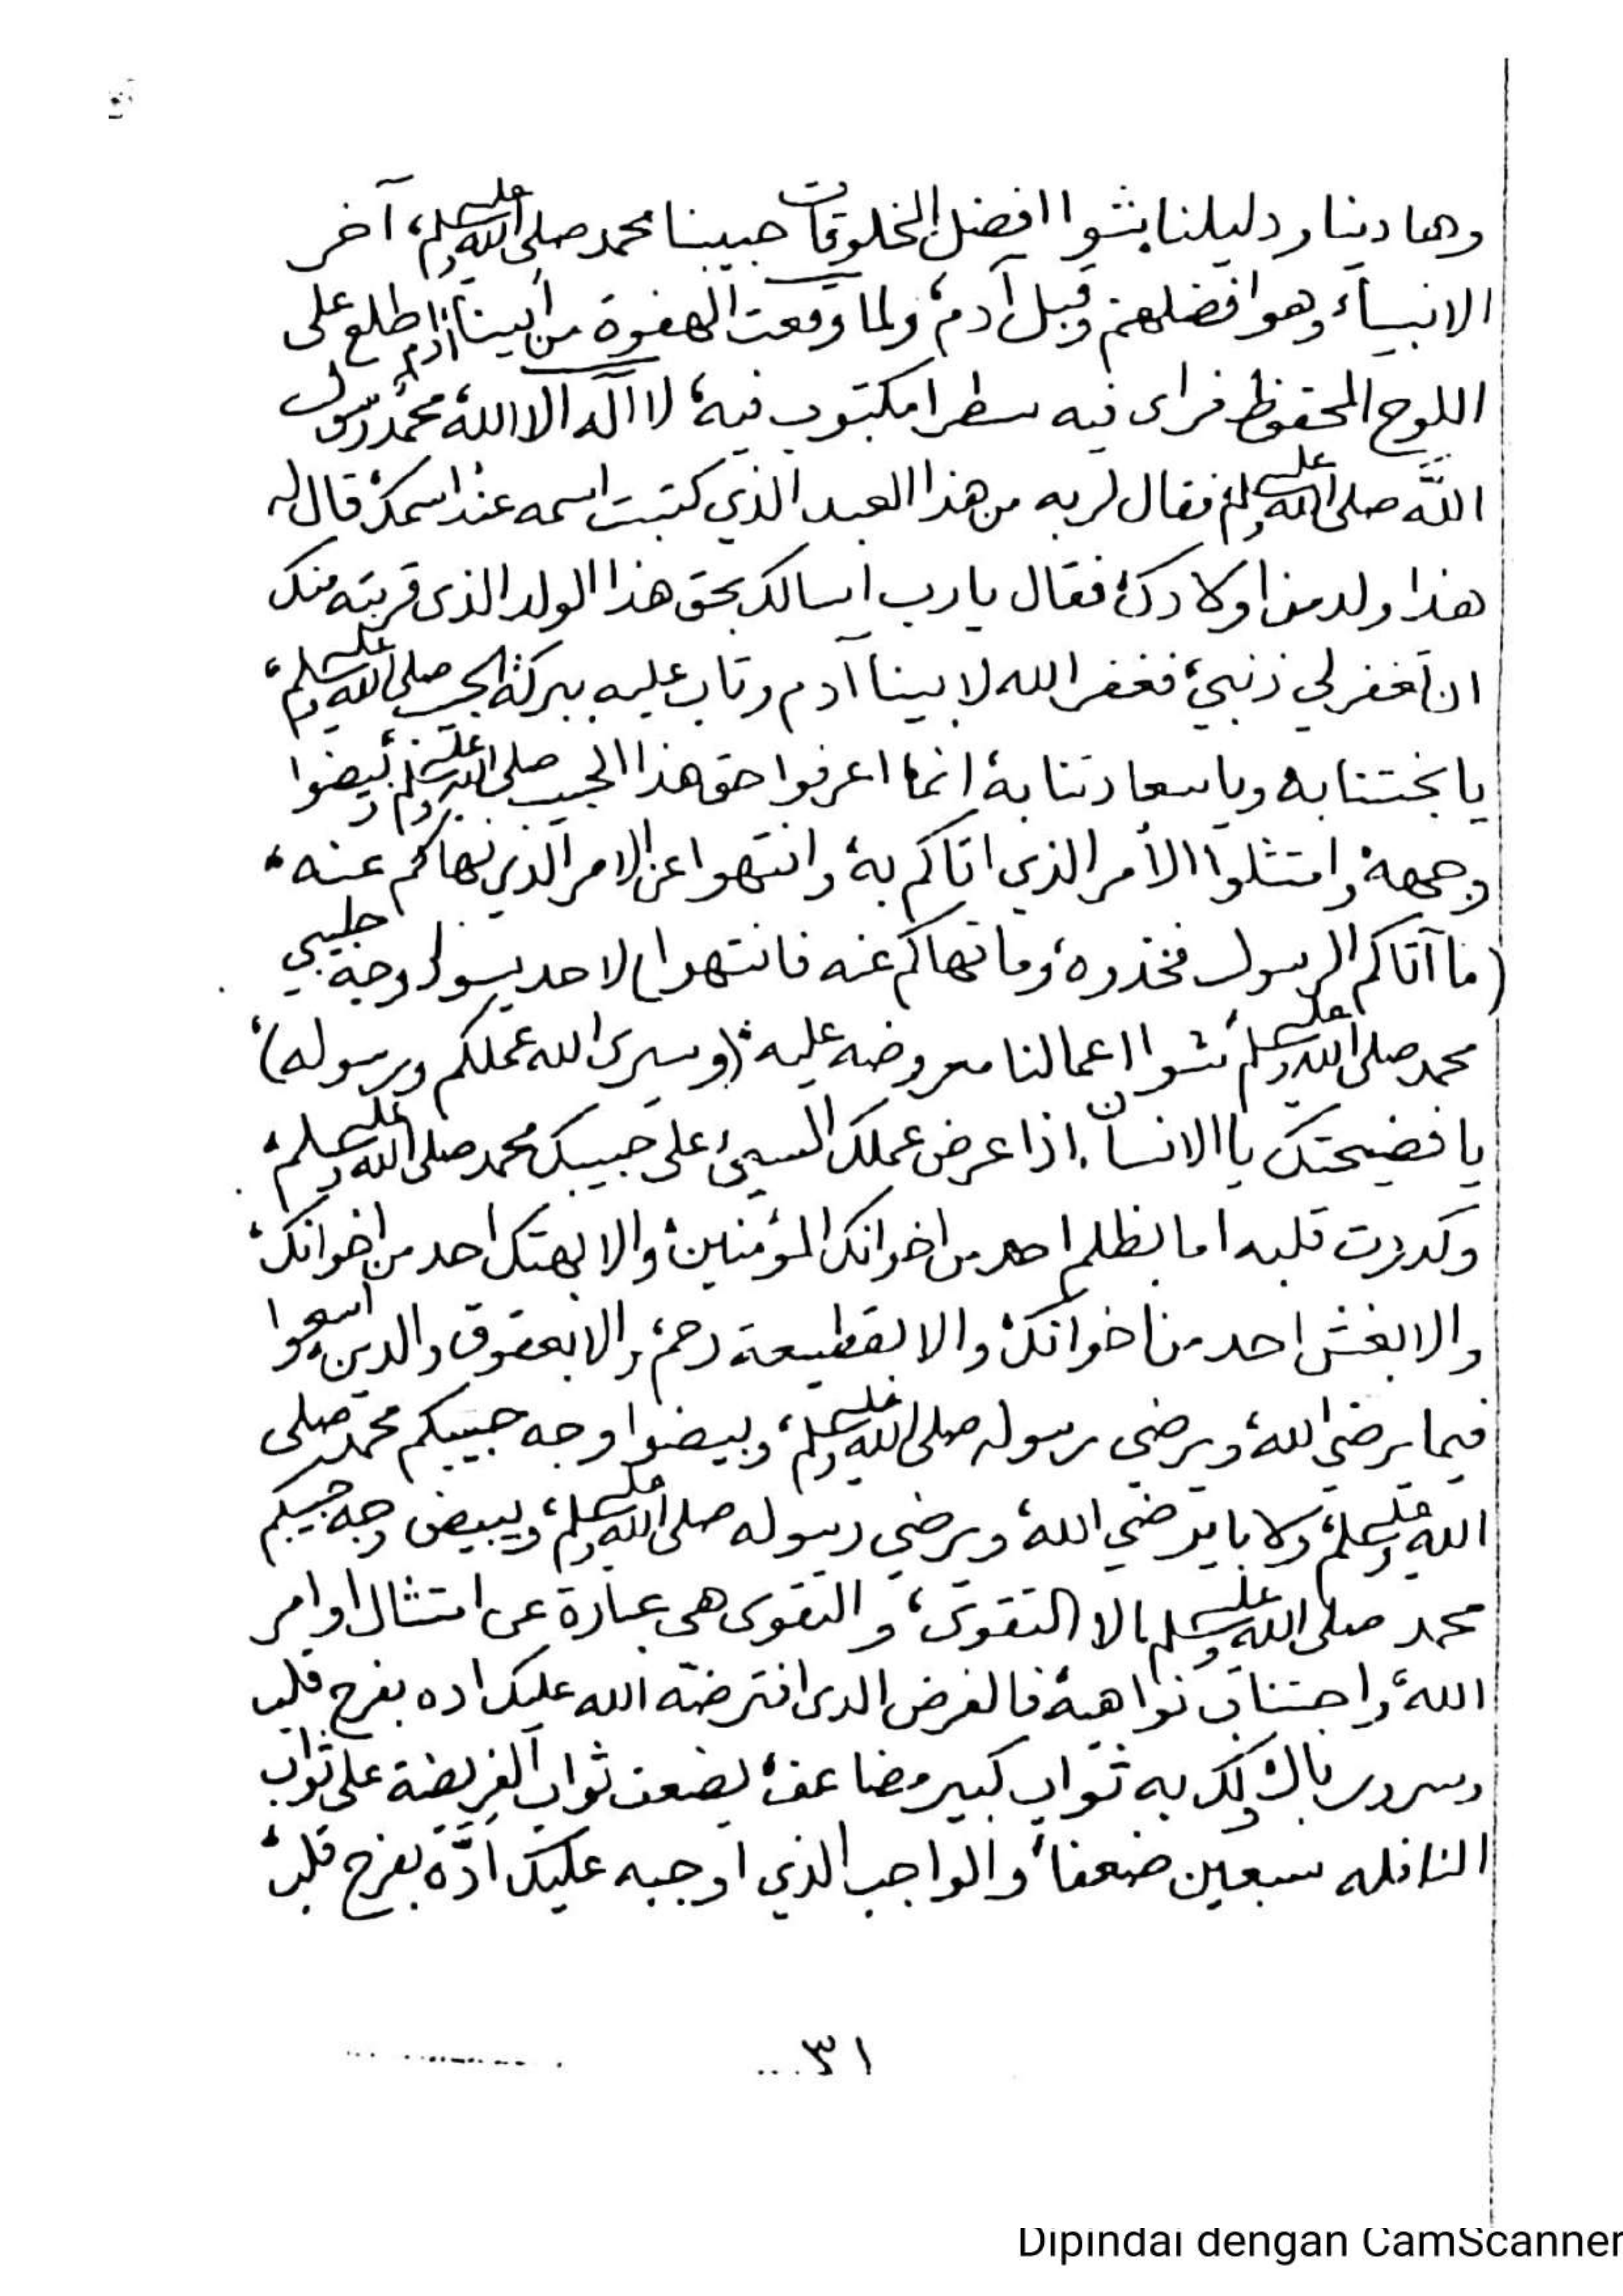 وهادينا ودليلنا بشوا افضل الخلوقات حبيبنا محمد صلى الله عليه وسلم، آخر
الانبياء وهو افضلهم وقبل آدم، ولما وقعت الهفوة من أبينا آدم اطلع على
اللوح المحفوظ فراى فيه سطرا مكتوب فيه، لا اله الا الله محمد رسول
الله صلى الله عليه وسلم فقال لربه من هذا العبد الذي كتبت اسمه عند اسمك قال له
هذا ولد من اولادك فقال يارب اسالك بحق هذا الولد الذى قربته منك
ان تغفر لي ذنبي، فغفر الله لابينا آدم وتاب عليه ببركة الحبيب صلى الله عليه وسلم،
يا بختنا به ويا سعادتنا به انما اعرفوا حق هذا الحبيب صلى الله عليه وسلم، بيضوا
وجهه وامتثلوا الأمر الذي اتاكم به، وانتهوا عن الامر الذي نهاكم عنه،
(ما آتاكم الرسول فخذوه، وما نهاكم عنه فانتهوا) لا حد يسود وجه حبيبي
محمد صلى الله عليه وسلم شوا اعمالنا معروضه عليه (وسيرى الله عملكم ورسوله)،
يا فضيحتك يا الانسان اذا عرض عملك السيئ على حبيبك محمد صلى الله عليه وسلم،
وكدرت قلبه اما بظلم احد من اخوانك المؤمنين، والا بهتك احد من اخوانك،
والا بغش احد من اخوانك، والا بقطيعة رحم، والا بعقوق والدين اسعوا
فيما يرضي الله، ويرضي رسوله صلى الله عليه وسلم، وبيضوا وجه حبيبكم محمد صلى
الله عليه وسلم، ولا با يرضي الله، ويرضي رسوله صلى الله عليه وسلم، ويبيض وجه حبيبكم
محمد صلى الله عليه وسلم الا التقوى، والتقوى هي عبارة عن امتثال اوامر
الله، واجتناب نواهيه فالفرض الدى افترضته الله عليك اده بفرح قلب
وسرور بال ولك به ثواب كبير مضاعف، يضعف ثواب الفريضة على ثواب
النافله سبعين ضعفا، والواجب الذي اوجبه عليك ادّه بفرح قلب،
٣١
Dipindai dengan CamScanner